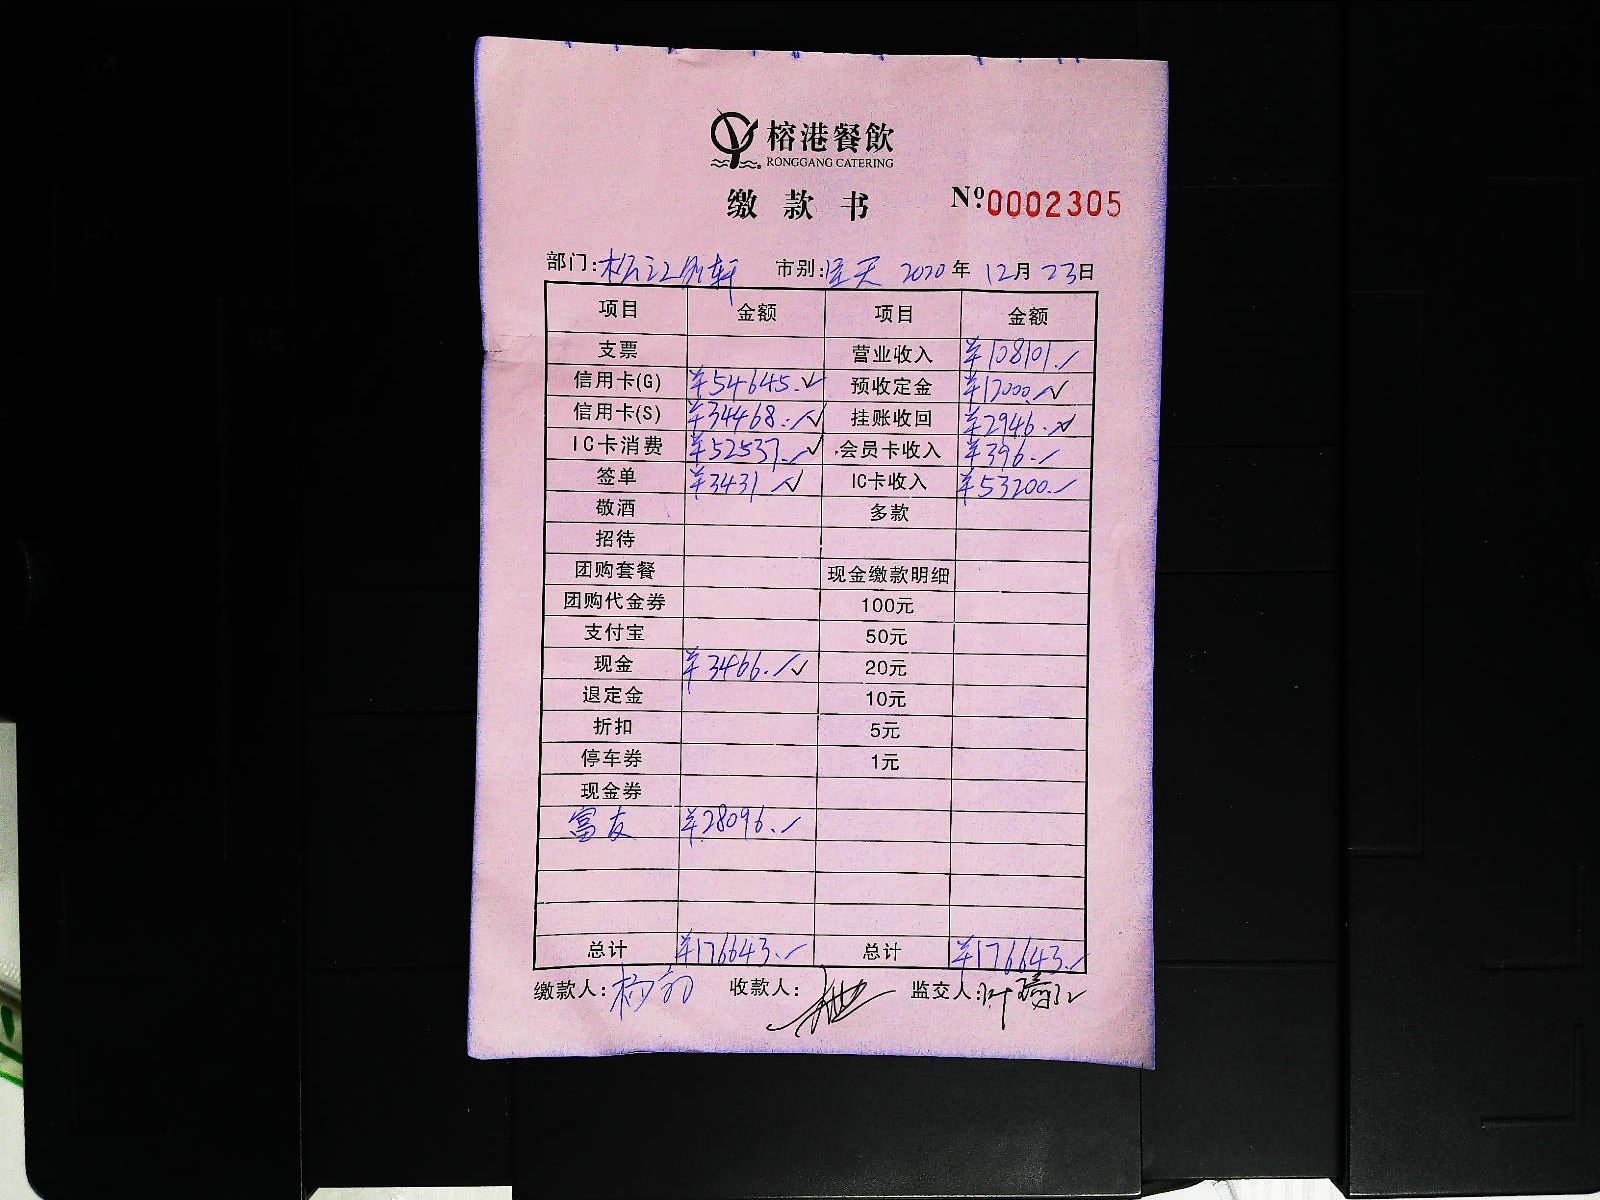 榕港餐飲
RONGGANG CATERING
缴款书 Nº:0002305
部门:松江 轩 市别:全天 2020年12月23日
项目 金额 项目 金额
支票 营业收入 ¥108101.
信用卡(G) ¥54645. 预收定金 ¥12000.
信用卡(S) ¥34468. 挂账收回 ¥2946.
IC卡消费 ¥52537. 会员卡收入 ¥396.
签单 ¥3431 IC卡收入 ¥53200.
敬酒 多款
招待
团购套餐 现金缴款明细
团购代金券 100元
支付宝 50元
现金 ¥3466. 20元
退定金 10元
折扣 5元
停车券 1元
现金券
富友 ¥28096.
总计 ¥176643. 总计 ¥176643.
缴款人:杨 收款人: 监交人:叶